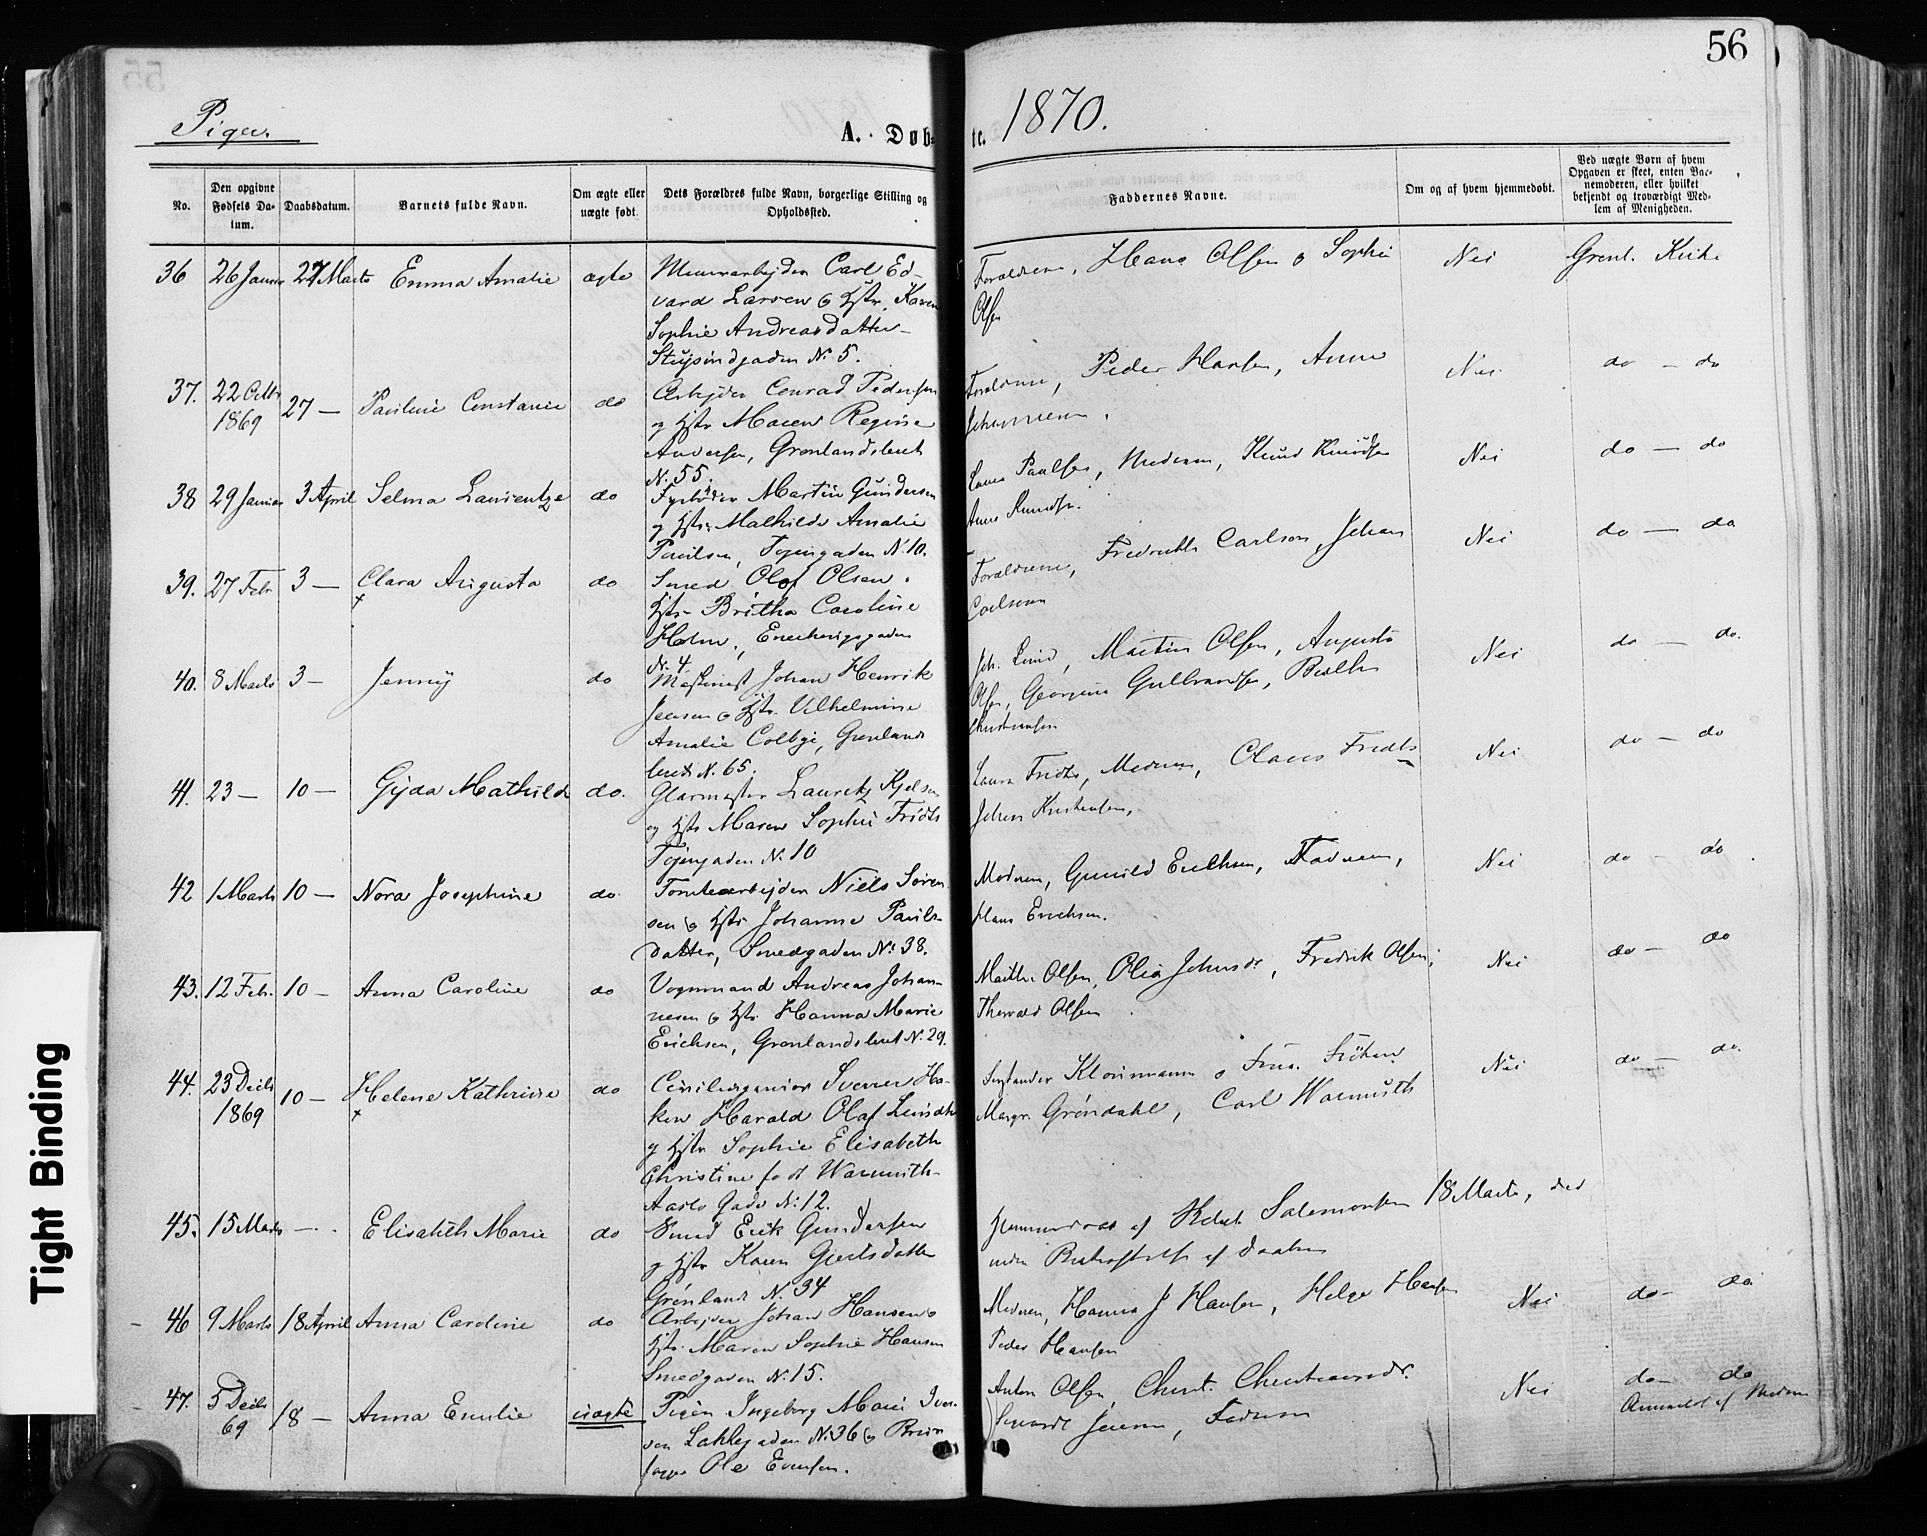 56
Piger.
A. Døb-
te. 1870.
No.
Den opgivne Fødsels Datum.
Daabsdatum.
Barnets fulde Navn.
Om ægte eller uægte født.
Dets Forældres fulde Navn, borgerlige Stilling og Opholdssted.
Faddernes Navne.
Om og af hvem hjemmedøbt.
Ved uægte Børn af hvem Opgaven er skeet, enten Barnemoderen, eller hvilket bekjendt og troværdigt Medlem af Menigheden.
36 26 Januar 27 Marts Emma Amalie ægte Murarbejder Carl Ed-
vard Larsen o Hstr. Karen
Sophie Andreasdatter
N. 5.
Forældrene, Hans Olsen o Sophie
Olsen
Nei Grønl. Kirke
37. 22 Octbr 1869 27 — Pauline Constance do Arbejder Conrad Pedersen
og Hstr Maren Regine
Andersen, Grønlandsleret
N. 55.
Forældrene, Peder Hansen, Anne
Johannesen.
Nei do — do
38 29 Januar 3 April Selma Laurentze do Fyrbøder Martin Gundersen
og Hstr. Mathilde Amalie
Paulsen, Tøiengaden N. 10.
Paulsen, Moderen, Knud Knudsen
Anne Knudsen.
Nei do — do
39. 27 Febr 3 — Clara Augusta do Smed Olof Olsen o
Hstr Britha Caroline
Holm, Enerhougsgaden
N. 4
Forældrene, Carlson, Johan
Carlson
Nei do — do
40. 8 Marts 3 — Jenny do Maskinist Johan Henrik
Jensen o Hstr. Vilhelmine
Amalie Colbye, Grønlands
leret N. 65.
Joh. Lund, Martin Olsen, Augusta
Olsen, Georgine Gulbrandsen, Berthe
Christiansen
Nei do — do.
41. 23 — 10 — Gyda Mathilde do. Glarmester Lauritz Kjelsen
og Hstr Maren Sophie Fridts
Tøiengaden N. 10
Laura Fridts, Moderen, Claus Fridts
Johan Kristiansen,
Nei do — do
42 1 Marts 10 — Nora Josephine do Tomtearbejder Niels Søren
sen o Hstr Johanne Pauls-
datter, Smedgaden N. 38.
Moderen, Gunild Erichsen, Faderen,
Hans Erichsen.
Nei do — do
43. 12 Feb. 10 — Anna Caroline do Vognmand Andreas Johan-
nesen o Hstr Hanna Marie
Erichsen, Grønlandsleret N. 29.
Marthe Olsen, Olia Johnsdr, Fredrik Olsen,
Thorvald Olsen
Nei do — do
44. 23 Decbr 1869 10 — Helene Kathrine do Civilingeniør Sverre Ha-
kon Harald Olaf Lundh
og Hstr Sophie Elisabeth
Christine født Warmuth
Aaslo Gade N. 12.
o Frue. Frøken
Margr. Grøndahl, Carl Warmuth
Nei do — do.
45. 15 Marts — Elisabeth Marie do Smed Erik Gundersen
og Hstr Karen Gjertsdatter
Grønland N. 34
Hjemmedøbt af Salomonsen 18 Marts, død
inden Bekræftelse af Daaben
46 9 Marts 18 April Anna Caroline do Arbejder Johan Hansen o
Hstr. Maren Sophie Hansen
Smedgaden N. 15.
Moderen, Hanna J Hansen, Helge Hansen
Peder Hansen
Nei do — do
47. 5 Decbr 69 18 — Anna Emilie uægte Pigen Ingeborg Marie Iver-
sen Lakkegaden N. 36 og
Ole Evensen.
Anton Olsen Christ. Christiansdr.
Jensen, Faderen
Nei do — do
Anmeldt af Moderen
Tight Binding